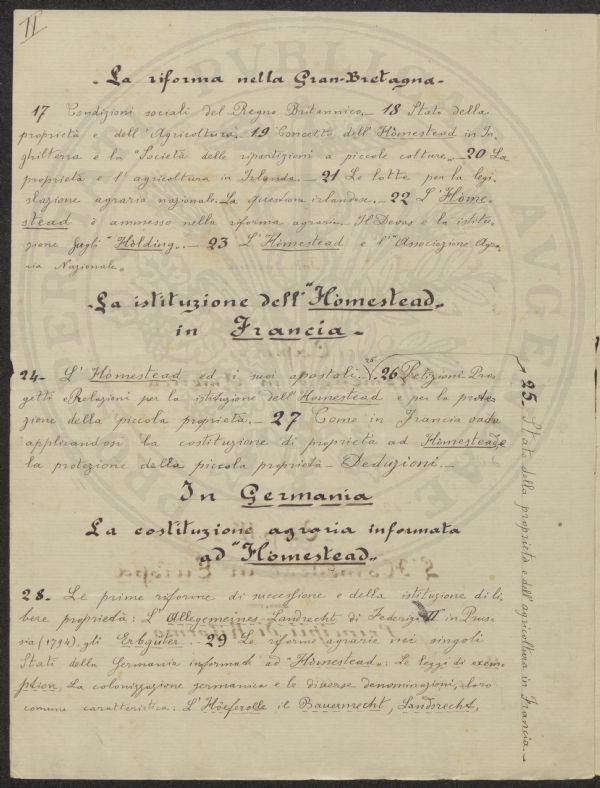 II
- La riforma nella Gran-Bretagna -
17 Condizioni sociali del Regno Britannico. - 18 Stato della
proprietà e dell'Agricoltura. 19 Concetto dell'Hòmestead in In-
ghilterra e la "Società delle ripartizioni a piccole colture„ - 20 La
proprietà e l'agricoltura in Irlanda. - 21 Le lotte per la legi-
slazione agraria nazionale. La questione irlandese. - 22 L'Hòme-
stead è ammesso nella riforma agraria. Il Devas e la istitu-
zione degli "Hòlding„. - 23 L'Hòmestead e l'"Associazione Agra-
ria Nazionale„
- La istituzione dell'"Hòmestead„
in Francia -
24 - L'Hòmestead ed i suoi apostoli. 25. 26 Petizioni Pro-
getti e Relazioni per la istituzione dell'Homestead e per la prote-
zione della piccola proprietà. - 27 Come in Francia vada
applicandosi la costituzione di proprietà ad Hòmestead, e
la protezione della piccola proprietà - Deduzioni. -
→ 25. Stato della proprietà e dell'agricoltura in Francia. -
In Germania
La costituzione agraria informata
ad "Hòmestead„
28. Le prime riforme di successione e della istituzione di li-
bere proprietà: L'Allegemeines-Landrecht di Federigo II in Prus-
sia (1794), gli Erbgüter. - 29 Le riforme agrarie nei singoli
Stati della Germania informati ad "Hòmestead„: Le leggi di exem-
ption, La colonizzazione germanica e le diverse denominazioni, loro
comune caratteristica: L'Höeferolle il Bauernrecht, Landsrecht,